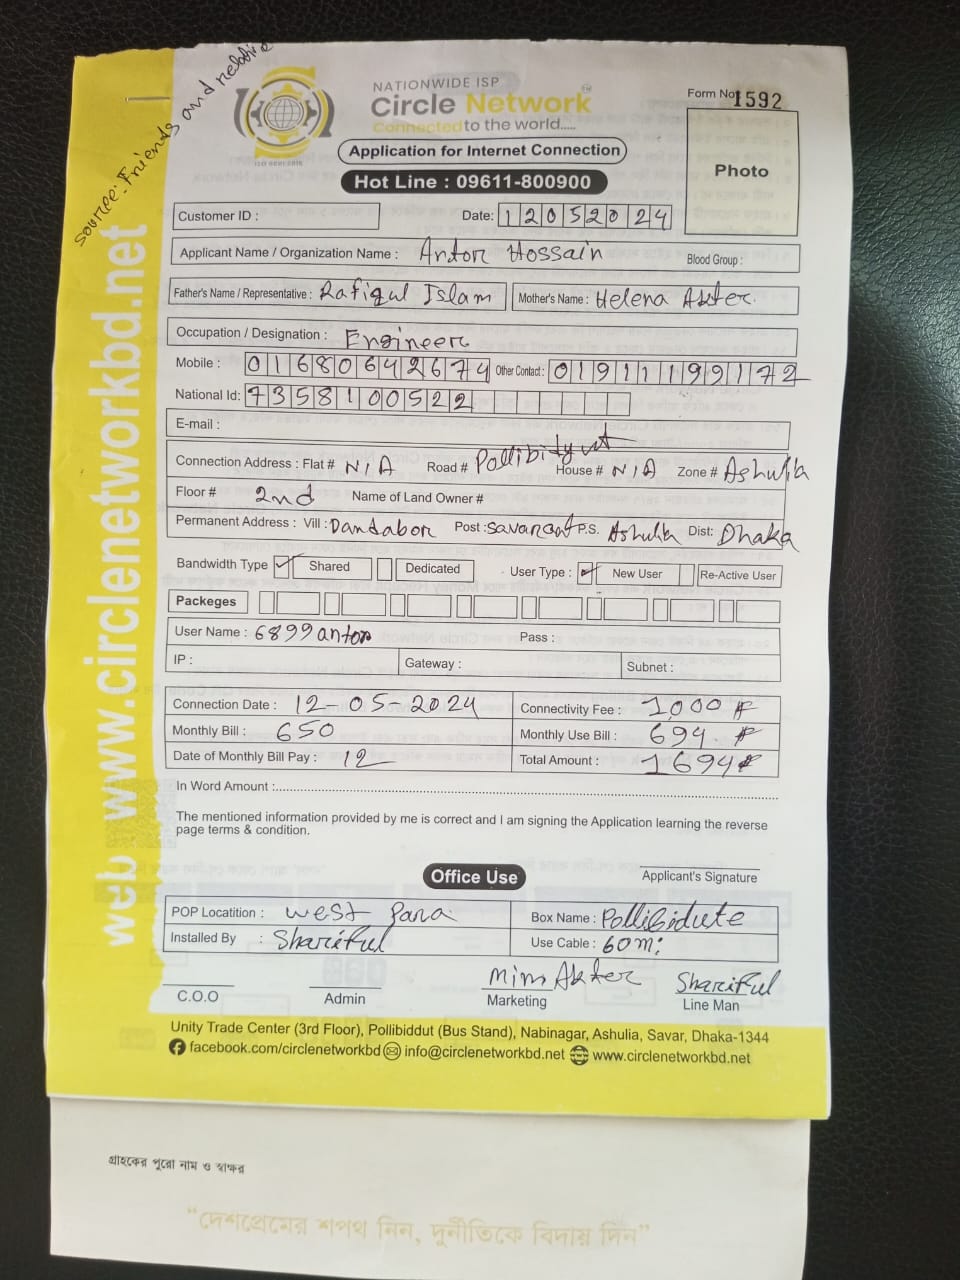 Source: Friends and relative
NATIONWIDE ISP
Circle Network
Connected to the world.....
ISO 9001:2015
Form No 1592
Application for Internet Connection
Photo
Hot Line : 09611-800900
Customer ID :
Date: 12052024
Applicant Name / Organization Name : Antor Hossain Blood Group :
Father's Name / Representative : Rafiqul Islam Mother's Name : Helena Akter.
Occupation / Designation : Engineer
Mobile : 01680642674 Other Contact : 01911199172
National Id: 7358100522
E-mail :
Connection Address : Flat # N/A Road # Pollibidyut House # N/A Zone # Ashulia
Floor # 2nd Name of Land Owner #
Permanent Address : Vill : Dandabor Post : Savarcant P.S. Ashulia Dist: Dhaka
Bandwidth Type ✓ Shared Dedicated User Type : ✓ New User Re-Active User
Packeges
User Name : 6899antor Pass :
IP : Gateway : Subnet :
Connection Date : 12-05-2024 Connectivity Fee : 1000 ₣
Monthly Bill : 650 Monthly Use Bill : 694 ₣
Date of Monthly Bill Pay : 12 Total Amount : 1694 ₣
In Word Amount :
The mentioned information provided by me is correct and I am signing the Application learning the reverse
page terms & condition.
Office Use
Applicant's Signature
POP Locatition : West Para Box Name : Pollibidute
Installed By : Shariful Use Cable : 60m:
Mim Akter Shariful
C.O.O Admin Marketing Line Man
Unity Trade Center (3rd Floor), Pollibiddut (Bus Stand), Nabinagar, Ashulia, Savar, Dhaka-1344
facebook.com/circlenetworkbd info@circlenetworkbd.net www.circlenetworkbd.net
web www.circlenetworkbd.net
গ্রাহকের পুরো নাম ও স্বাক্ষর
“দেশপ্রেমের শপথ নিন, দুর্নীতিকে বিদায় দিন”